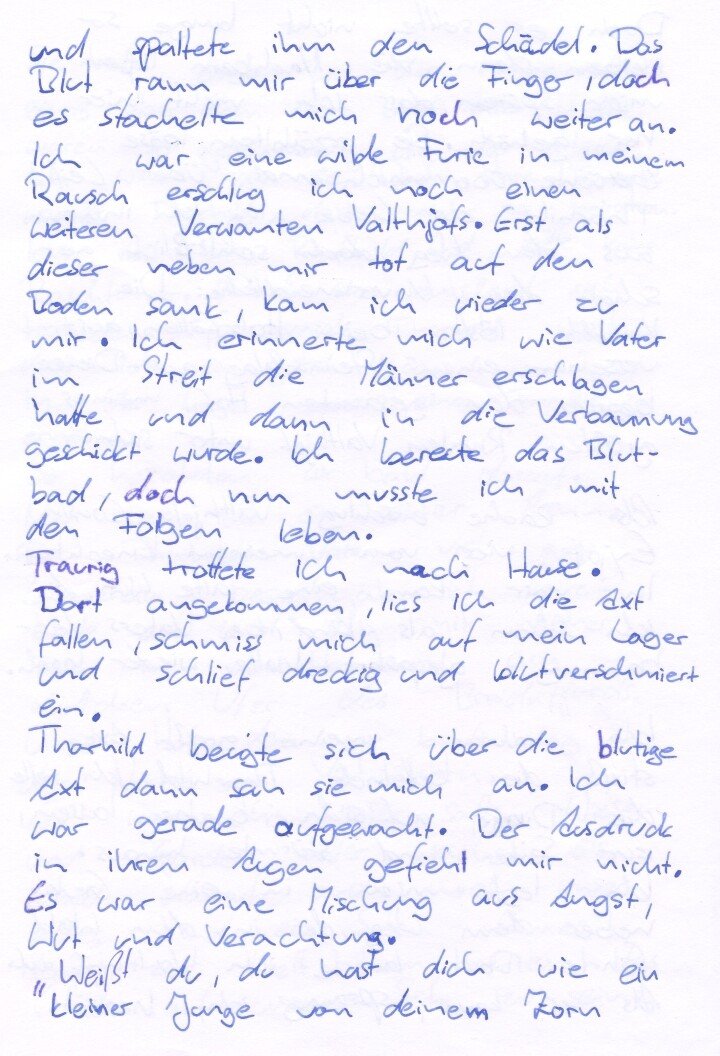 und spaltete ihm den Schädel. Das
Blut rann mir über die Finger, doch
es stachelte mich noch weiter an.
Ich war eine wilde Furie in meinem
Rausch erschlug ich noch einen
weiteren Verwanten Valthjofs. Erst als
dieser neben mir tot auf den
Boden sank, kam ich wieder zu
mir. Ich erinnerte mich wie Vater
im Streit die Männer erschlagen
hatte und dann in die Verbannung
geschickt wurde. Ich bereute das Blut-
bad, doch nun musste ich mit
den Folgen leben.
Traurig trottete ich nach Hause.
Dort angekommen, lies ich die Axt
fallen, schmiss mich auf mein Lager
und schlief dreckig und blutverschmiert
ein.
Thorhild beugte sich über die blutige
Axt dann sah sie mich an. Ich
war gerade aufgewacht. Der Ausdruck
in ihren Augen gefiehl mir nicht.
Es war eine Mischung aus Angst,
Wut und Verachtung.
"Weißt du, du hast dich wie ein
kleiner Junge von deinem Zorn